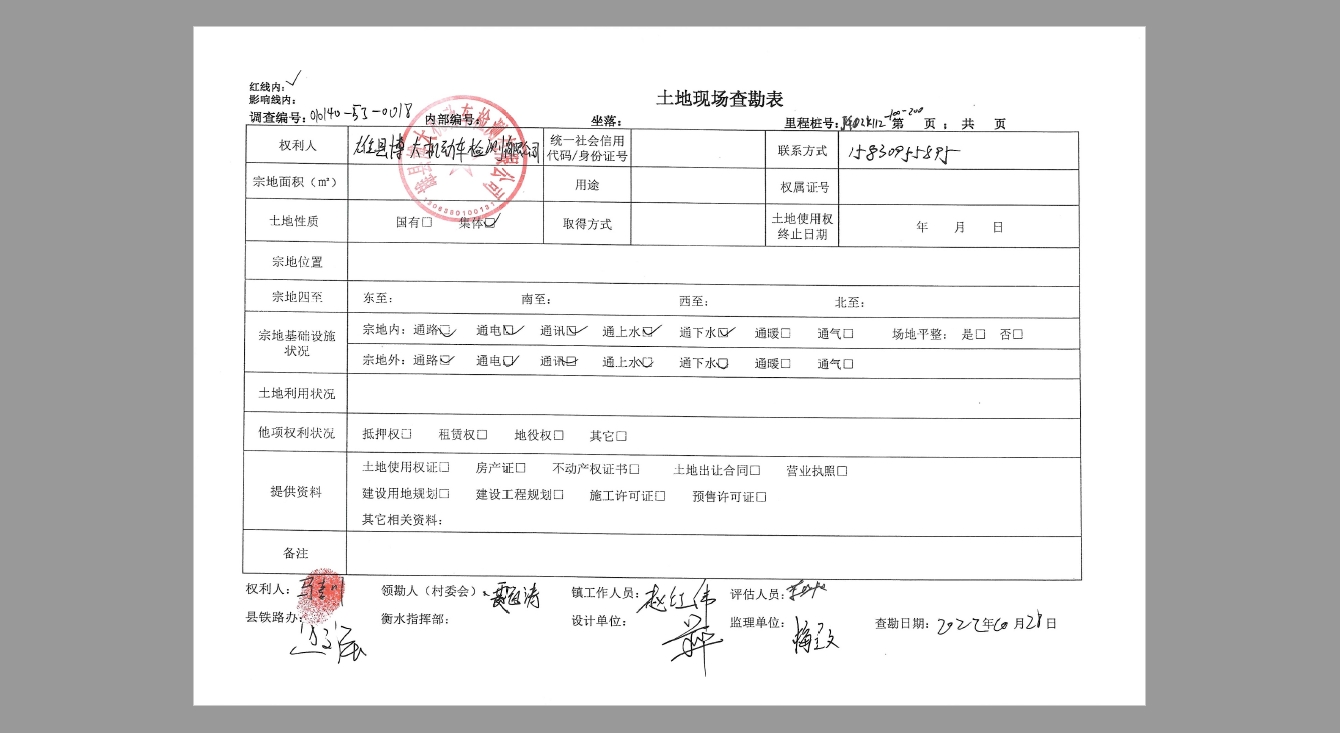 红线内：✓
影响线内：
土地现场查勘表
调查编号：010140-53-0018 内部编号： 坐落： 里程桩号： 第 页； 共 页
权利人 县博大机动车检测有限公司 统一社会信用代码/身份证号 联系方式 15830955895
宗地面积（m²） 用途 权属证号
土地性质 国有☐ 集体☑ 取得方式 土地使用权终止日期 年 月 日
宗地位置
宗地四至 东至： 南至： 西至： 北至：
宗地基础设施状况 宗地内：通路☑ 通电☑ 通讯☑ 通上水☑ 通下水☑ 通暖☐ 通气☐ 场地平整： 是☐ 否☐
宗地外：通路☑ 通电☑ 通讯☑ 通上水☑ 通下水☑ 通暖☐ 通气☐
土地利用状况
他项权利状况 抵押权☐ 租赁权☐ 地役权☐ 其它☐
提供资料 土地使用权证☐ 房产证☐ 不动产权证书☐ 土地出让合同☐ 营业执照☐
建设用地规划☐ 建设工程规划☐ 施工许可证☐ 预售许可证☐
其它相关资料：
备注
权利人： 领勘人（村委会）： 镇工作人员：赵红伟 评估人员：
县铁路办： 衡水指挥部： 设计单位： 监理单位： 查勘日期：2022年10月28日